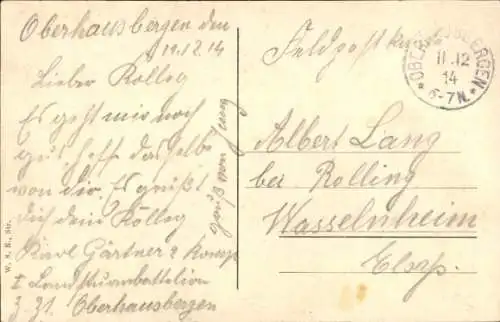 Oberhausbergen den
11.12.14
Lieber Kolleg
Es geht mir noch
gut, hoff dasselbe
von dir. Es grüßt
Dich dein Kolleg
Karl Gärtner 2 Komp
I Landsturmbattelion
3-31. Oberhausbergen
gruß von
Feldpost
OBERHAUSBERGEN
11.12
14
6-7N.
Albert Lang
bei Rolling
Wasselnheim
Elsas.
W. S. K., Str.